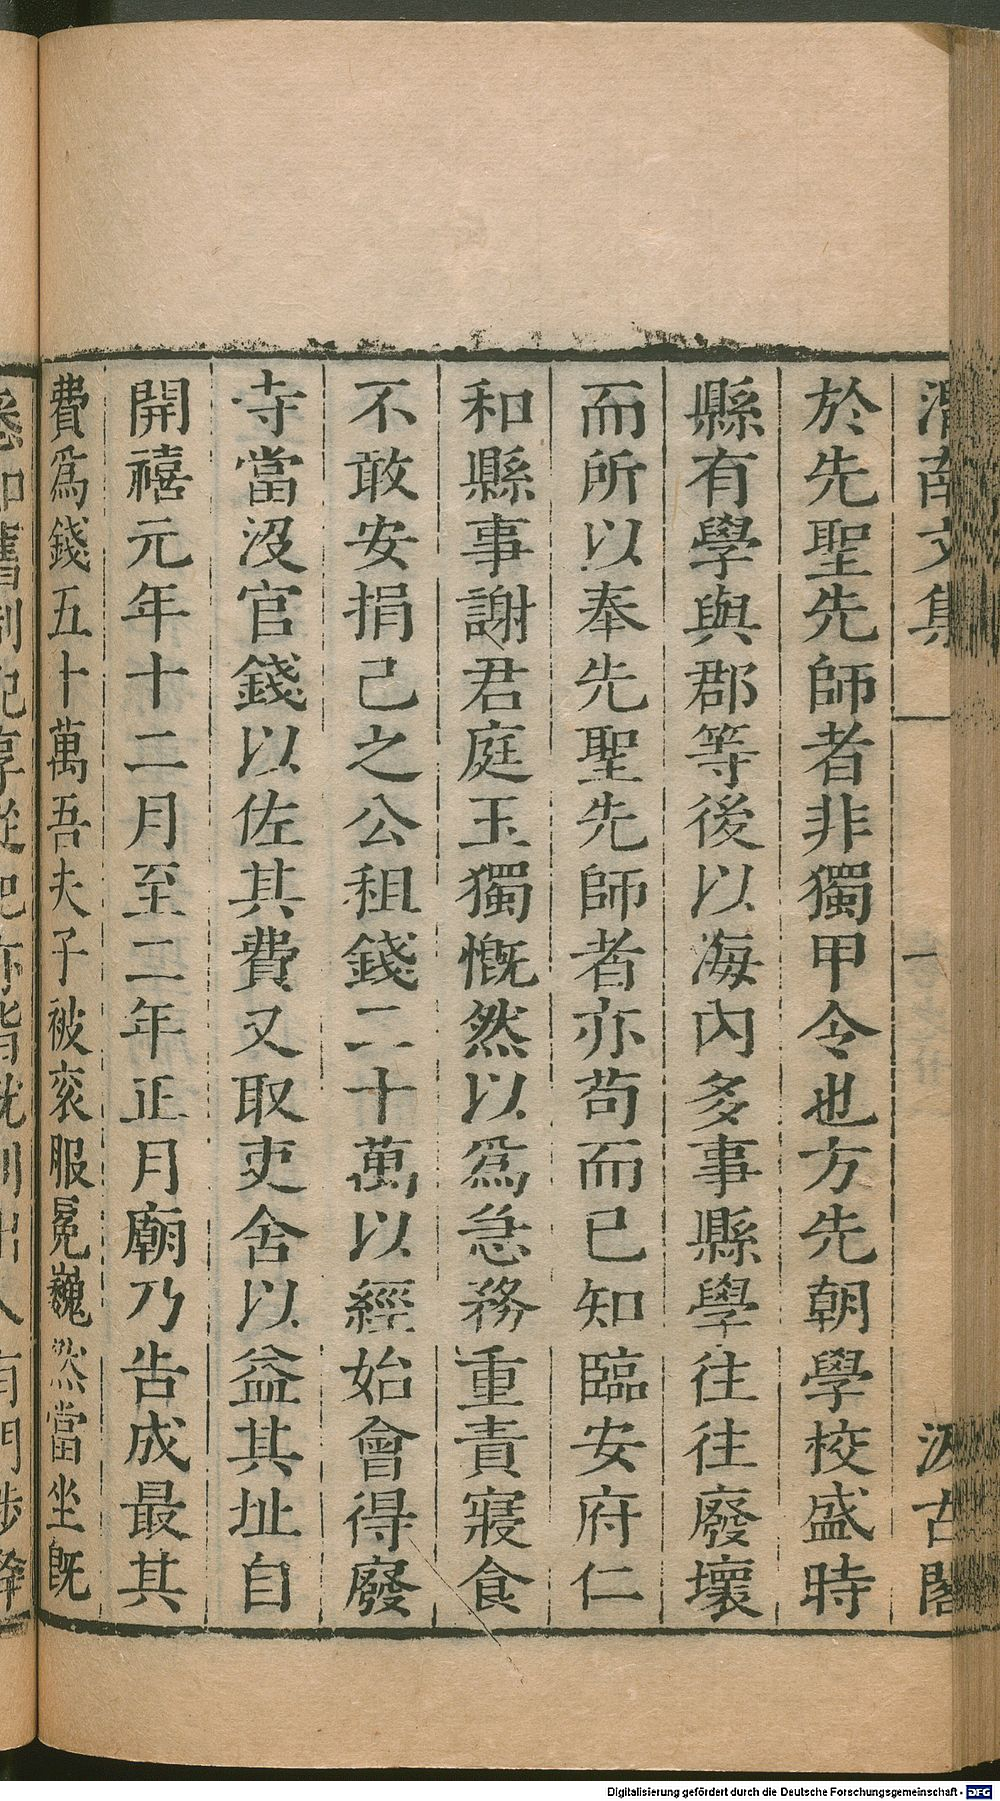 渭南文集 一 汲古閣
於先聖先師者非獨甲令也方先朝學校盛時
縣有學與郡等後以海內多事縣學往往廢壞
而所以奉先聖先師者亦苟而已知臨安府仁
和縣事謝君庭玉獨慨然以爲急務重責寢食
不敢安捐己之公租錢二十萬以經始會得廢
寺當沒官錢以佐其費又取吏舍以益其址自
開禧元年十二月至二年正月廟乃告成最其
費爲錢五十萬吾夫子被袞服冕巍然當坐旣
Digitalisierung gefördert durch die Deutsche Forschungsgemeinschaft - DFG